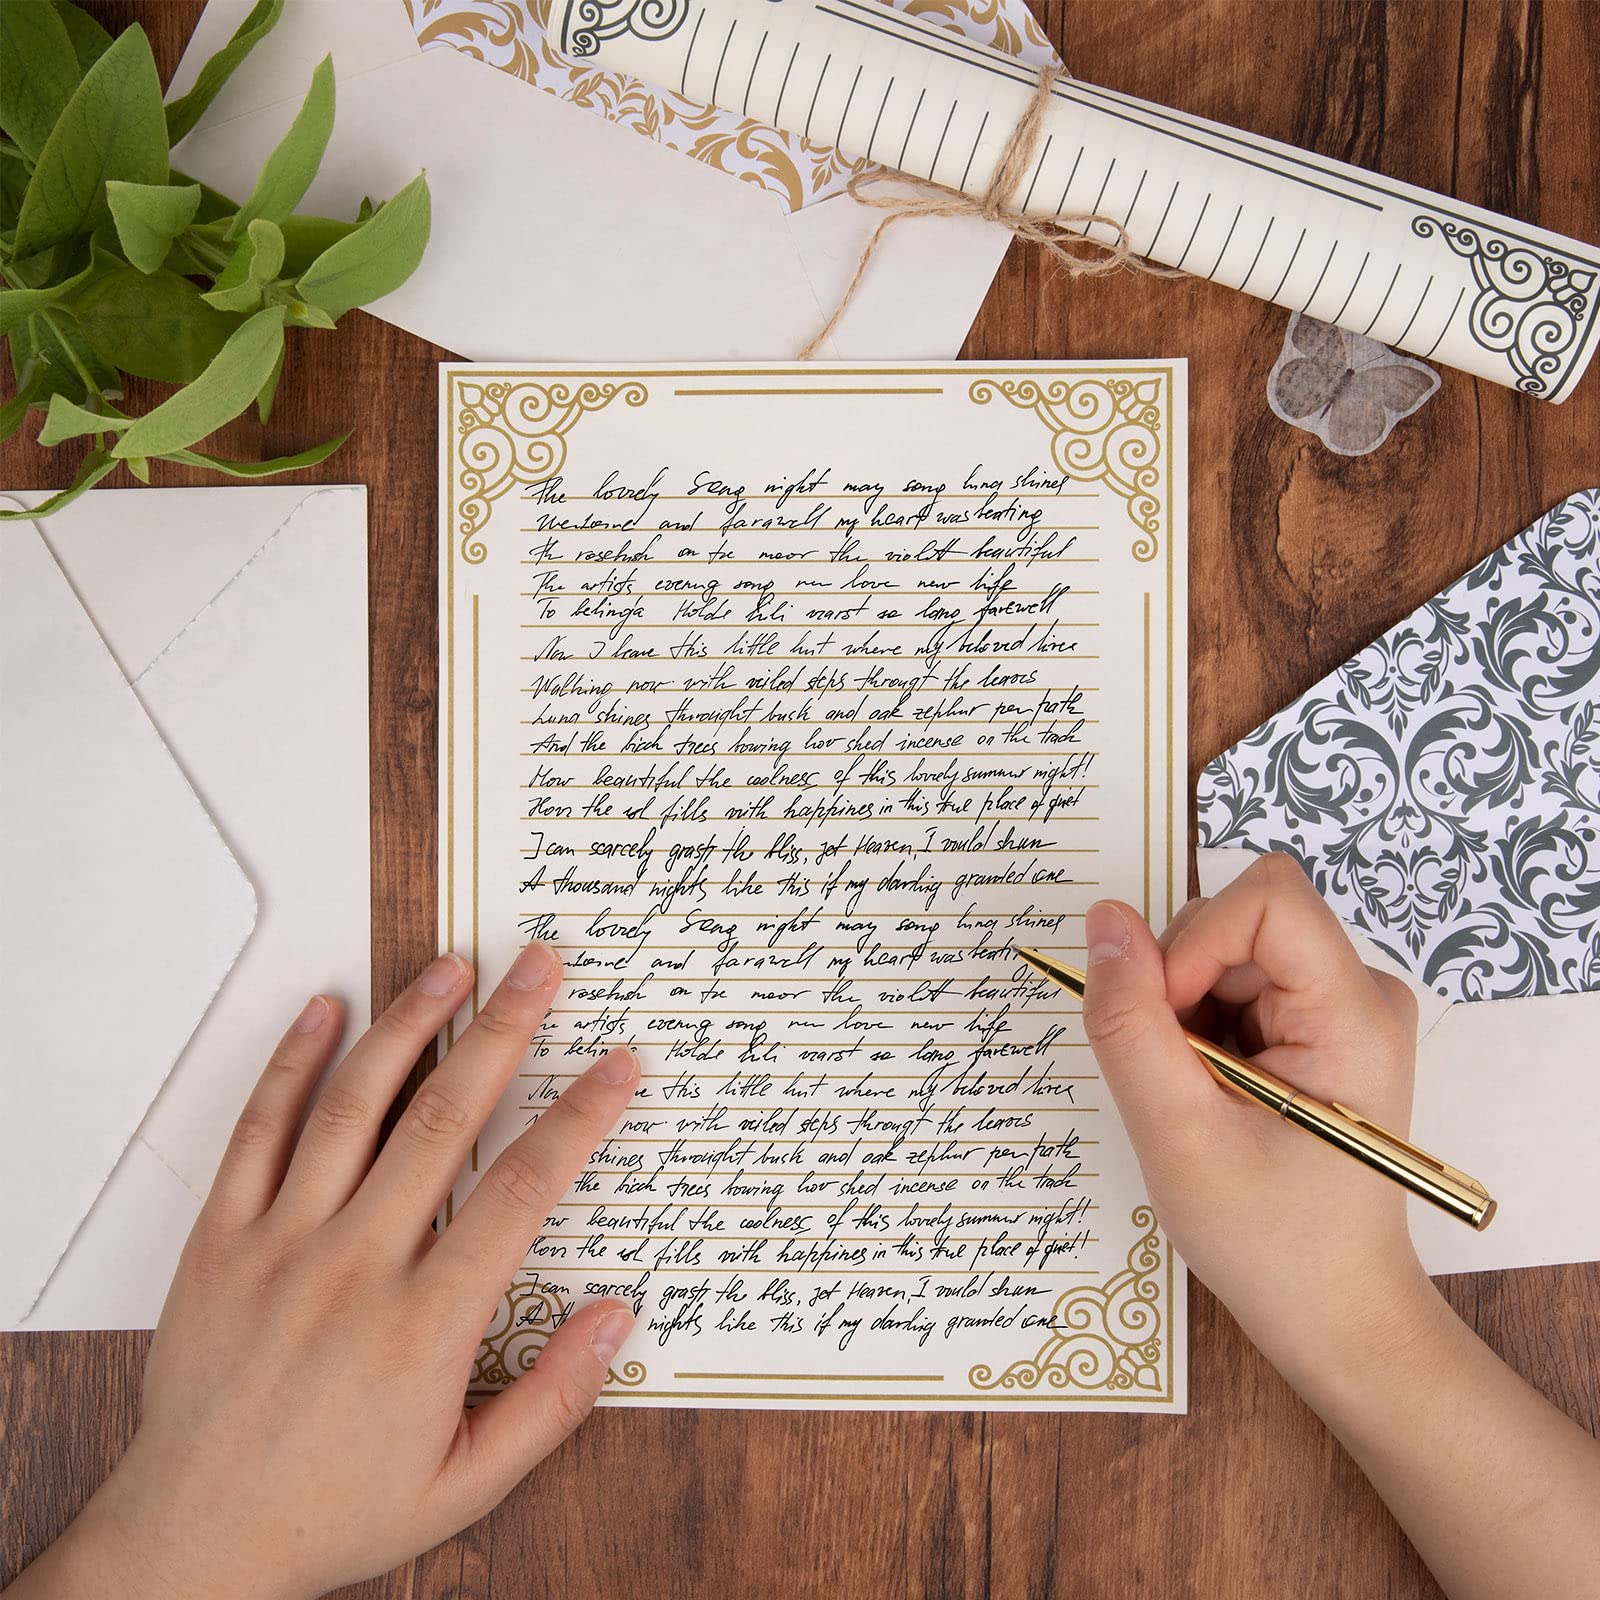 The lovely Song night may song luna shines
Welcome and farawell my heart was beating
Th rosebush on the moor the violett beautiful
The artists evening song new love new life
To belinda Holde Lili warst so long farewell
Now I leave this little hut where my beloved lives
Walking now with veiled steps througt the leaves
Luna shines throught bush and oak zephur per path
And the birch trees bowing how shed incense on the track
How beautiful the coolness of this lovely summer night!
How the sol fills with happines in this true place of quiet
I can scarcely grasp the bliss, jet Heaven, I would shun
A thousand nights like this if my darling granted one
The lovely Song night may song luna shines
and farawell my heart was beating
rosebush on the moor the violett beautiful
artists evening song new love new life
To Holde Lili warst so long farewell
this little hut where my beloved lives
now with veiled steps througt the leaves
shines throught bush and oak zephur per path
the birch trees bowing how shed incense on the track
beautiful the coolness of this lovely summer night!
How the sol fills with happines in this true place of quiet!
I can scarcely grasp the bliss, jet Heaven, I would shun
A nights like this if my darling granted one